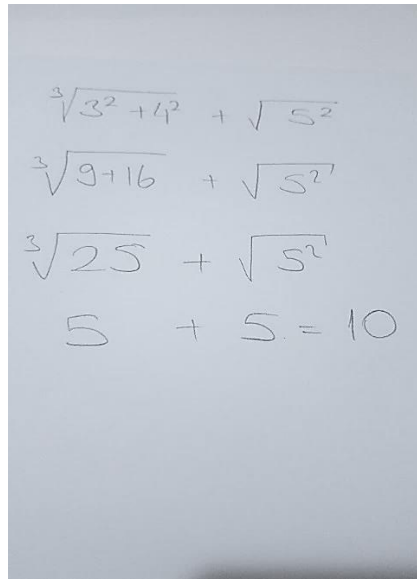 ∛(3² + 4²) + √(5²)
∛(9+16) + √(5²)
∛25 + √(5²)
5 + 5 = 10